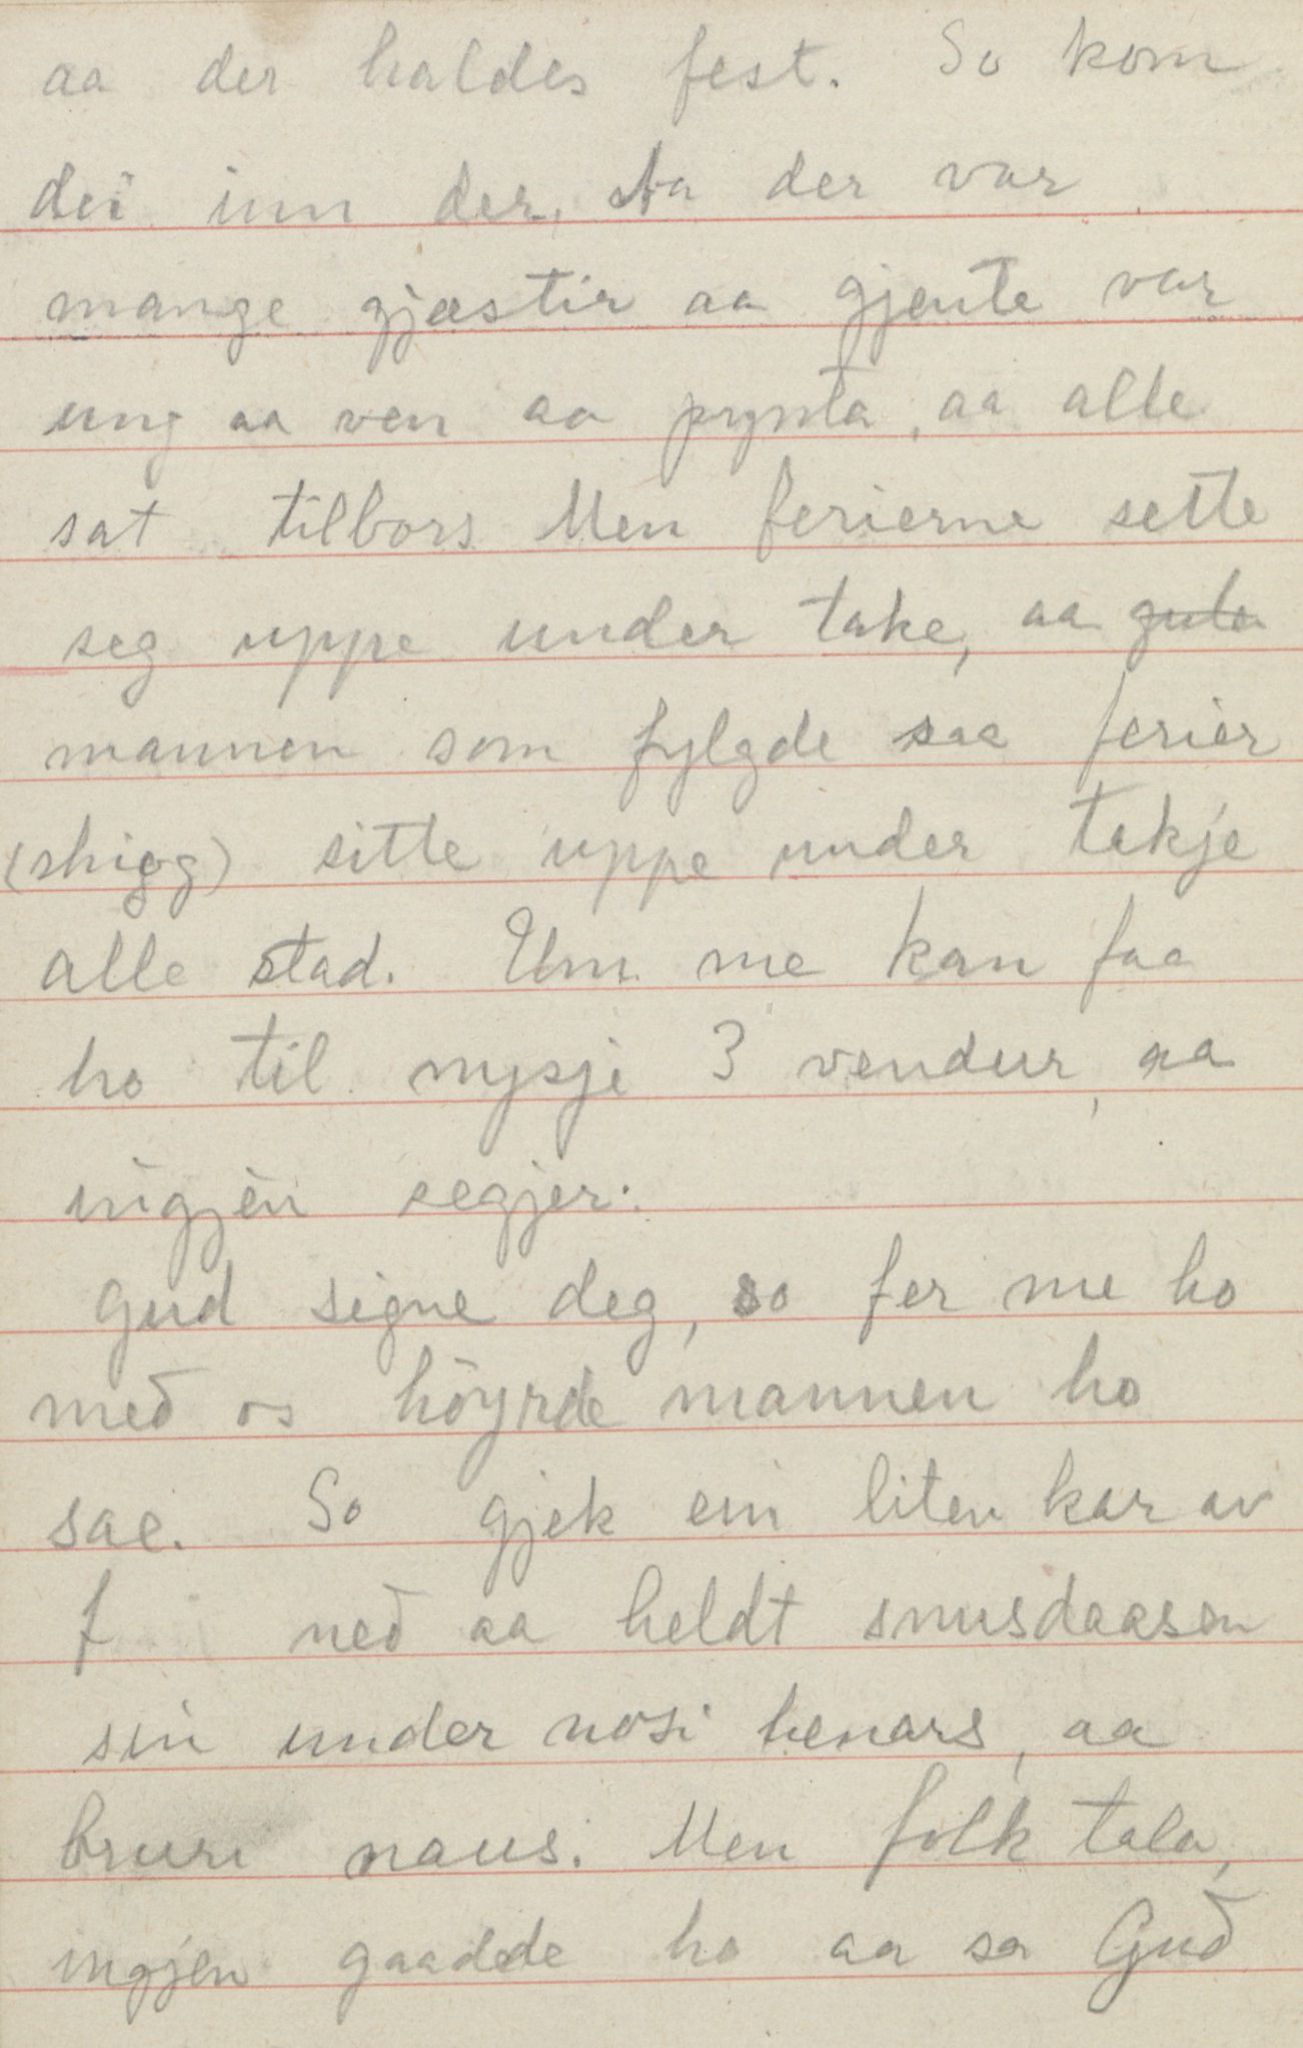 aa der haldes fest. So kom
dei inn der. Aa der var
mange gjæstir aa gjente var
ung aa ven aa pynta, aa alle
sat tilbors Men ferierne sette
seg uppe under take, aa gula
mannen som fylgde saa ferier
(shigg) sitte uppe under takje
alle stad. Um me kan faa
ho til nysje 3 vendur, aa
ingjen segjer:
Gud signe deg, so fer me ho
með os höyrde mannen ho
sae. So gjek ein liten kar av
f neð aa heldt snusdaasen
sin under nosi henars, aa
bruri naus. Men folk tala,
ingjen gaadde ho aa sa Guð